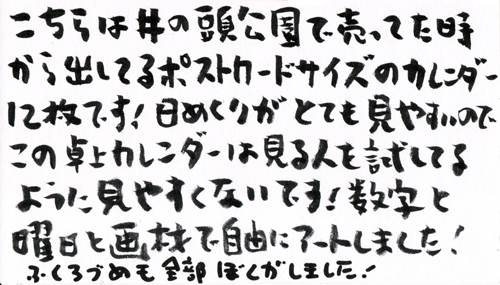 こちらは井の頭公園で売ってた時
から出してるポストカードサイズのカレンダー
12枚です！日めくりがとても見やすいので
この卓上カレンダーは見る人を試してる
ように見やすくないです！数字と
曜日と画材で自由にアートしました！
ふくろづめも全部ぼくがしました！